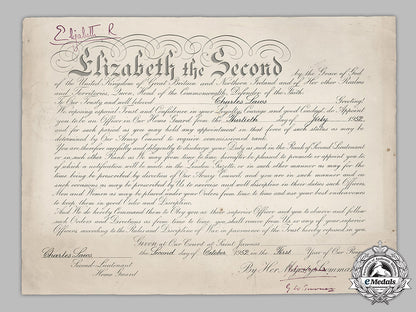 Elizabeth R
Elizabeth the Second
by the Grace of God
of the United Kingdom of Great Britain and Northern Ireland and of Her other Realms
and Territories, Queen, Head of the Commonwealth, Defender of the Faith.
To Our Trusty and well beloved Charles Laws Greeting!
We reposing especial Trust and Confidence in your Loyalty, Courage and good Conduct, do Appoint
you to be an Officer in Our Home Guard from the Thirtieth day of July 1952
and for such period as you may hold any appointment in that force of such status as may be
determined by Our Army Council to require commissioned rank.
You are therefore carefully and diligently to discharge your Duty as such in the Rank of Second Lieutenant
or in such other Rank as We may from time to time hereafter be pleased to promote or appoint you to
of which a notification will be made in the London Gazette, or in such other manner as may for the
time being be prescribed by direction of Our Army Council, and you are in such manner and on
such occasions as may be prescribed by Us to exercise and well discipline in their duties such Officers,
Men and Women as may be placed under your Orders from time to time and use your best endeavours
to keep them in good Order and Discipline.
And We do hereby Command them to Obey you as their superior Officer and you to observe and follow
such Orders and Directions as from time to time you shall receive from Us or any of your superior
Officers according to the Rules and Discipline of War in pursuance of the Trust hereby reposed in you.
Given at Our Court at Saint James's
the Second day of October 1952 in the First Year of Our Reign
Charles Laws
Second-Lieutenant
Home Guard
By Her Command
eMedals